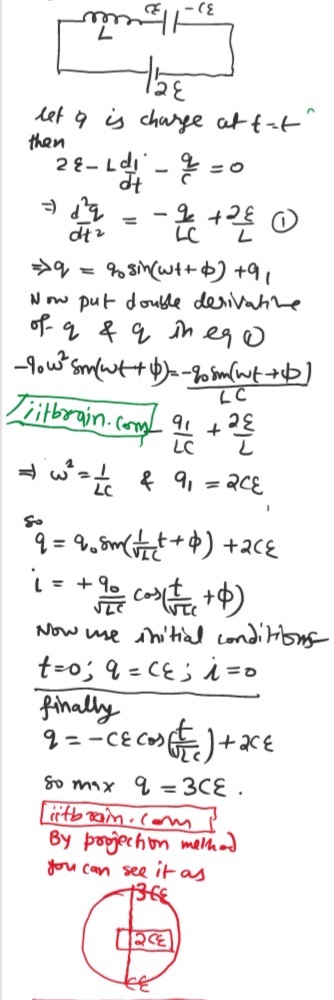 Cε -Cε
L
2ε
let q is charge at t=t
then
2ε - L di/dt - q/C = 0
⇒ d²q/dt² = - q/LC + 2ε/L ①
⇒ q = q₀ sin(ωt+ϕ) + q₁
Now put double derivative
of q & q in eq ①
-q₀ω² sin(ωt+ϕ) = -q₀ sin(ωt+ϕ)/LC
iitbrain.com - q₁/LC + 2ε/L
⇒ ω² = 1/LC & q₁ = 2Cε
so
q = q₀ sin(1/√LC t + ϕ) + 2Cε
i = + q₀/√LC cos(t/√LC + ϕ)
Now use initial conditions
t=0; q = Cε; i=0
finally
q = -Cε cos(t/√LC) + 2Cε
so max q = 3Cε.
iitbrain.com
By projection method
you can see it as
3Cε
2Cε
Cε